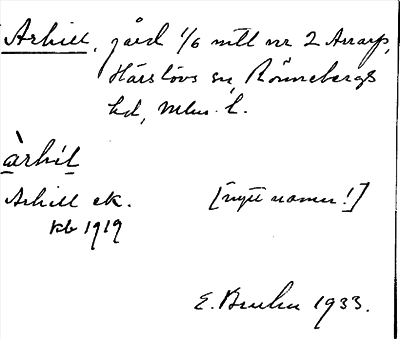 Arhill, gård 1/6 mtl nr 2 Anarp,
Härslövs sn, Rönnebergs
hd, Mlm. l.
àrhíl
Arhill ek.
[nytt namn!]
kb 1919
E. Bruhn 1933.